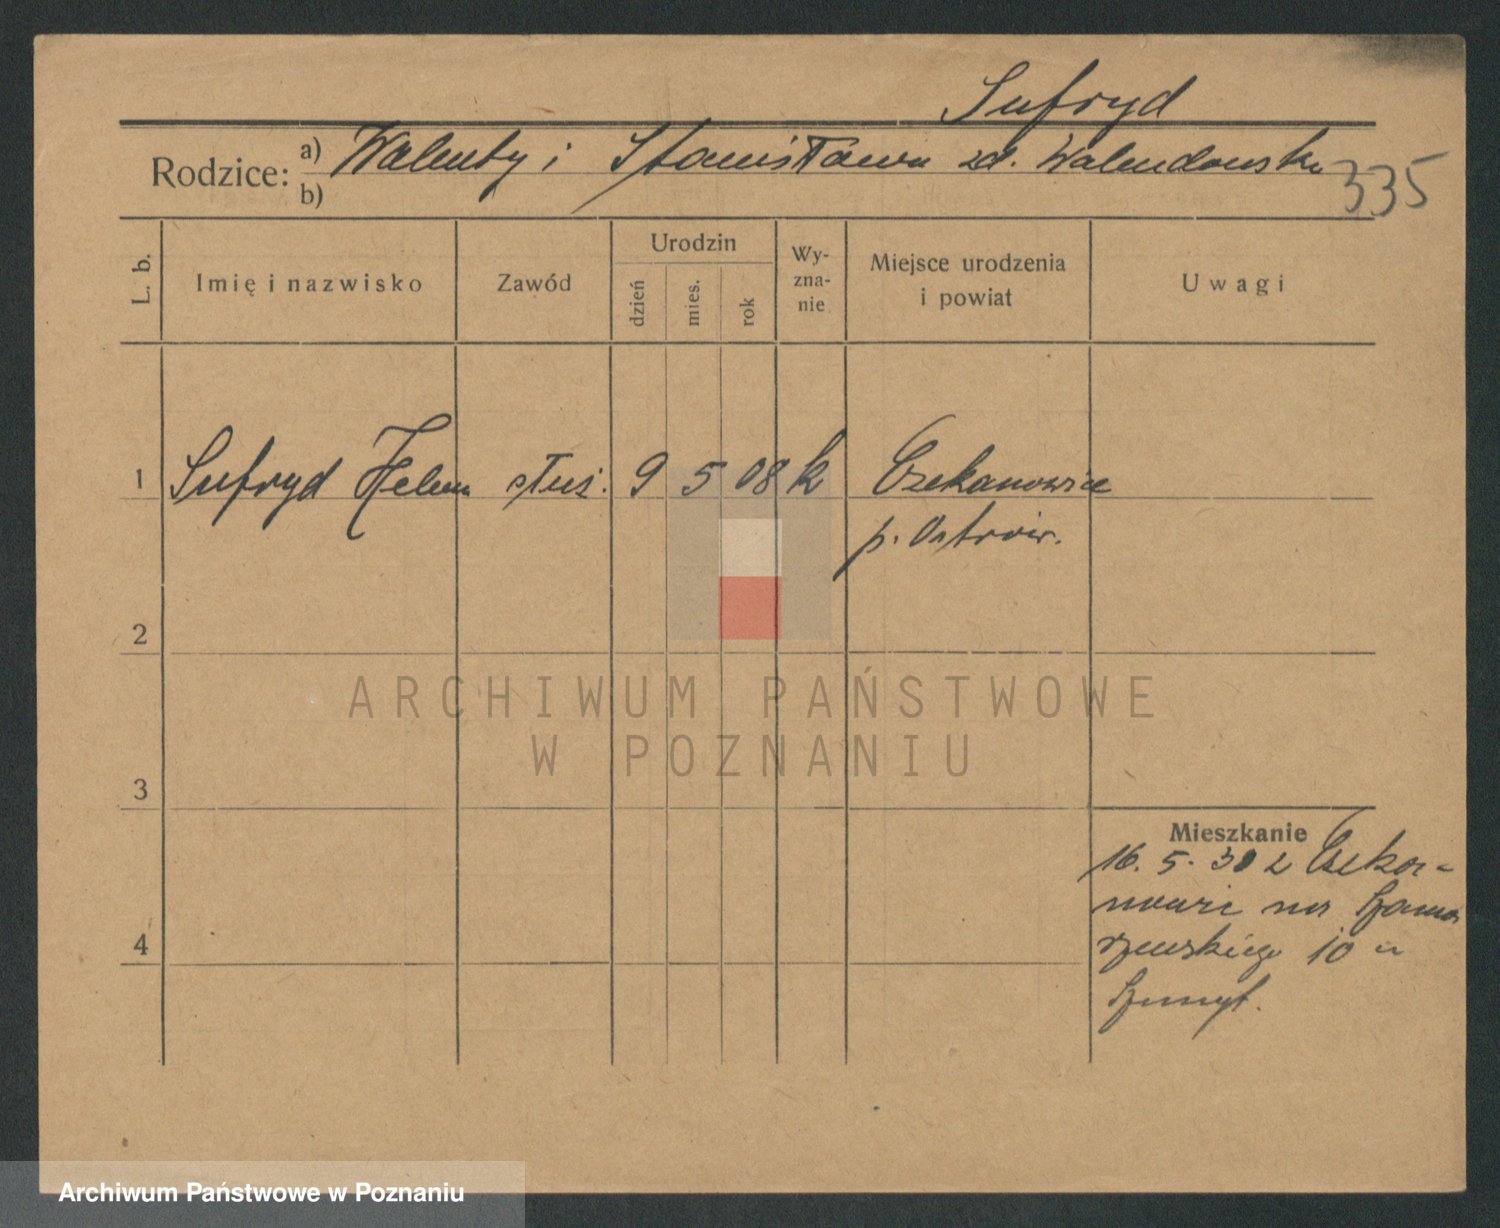 Sufryd
Rodzice: a) Walenty i Stanisława zd. Walendowska
b)
335
L. b.
Imię i nazwisko
Zawód
Urodzin
dzień
mies.
rok
Wy-
zna-
nie
Miejsce urodzenia
i powiat
Uwagi
1 Sufryd Helena służ. 9 5 08 k Czekanowice
p. Ostrów.
2
ARCHIWUM PAŃSTWOWE
W POZNANIU
3
Mieszkanie
16. 5. 30 z
na
10 u
4
Archiwum Państwowe w Poznaniu